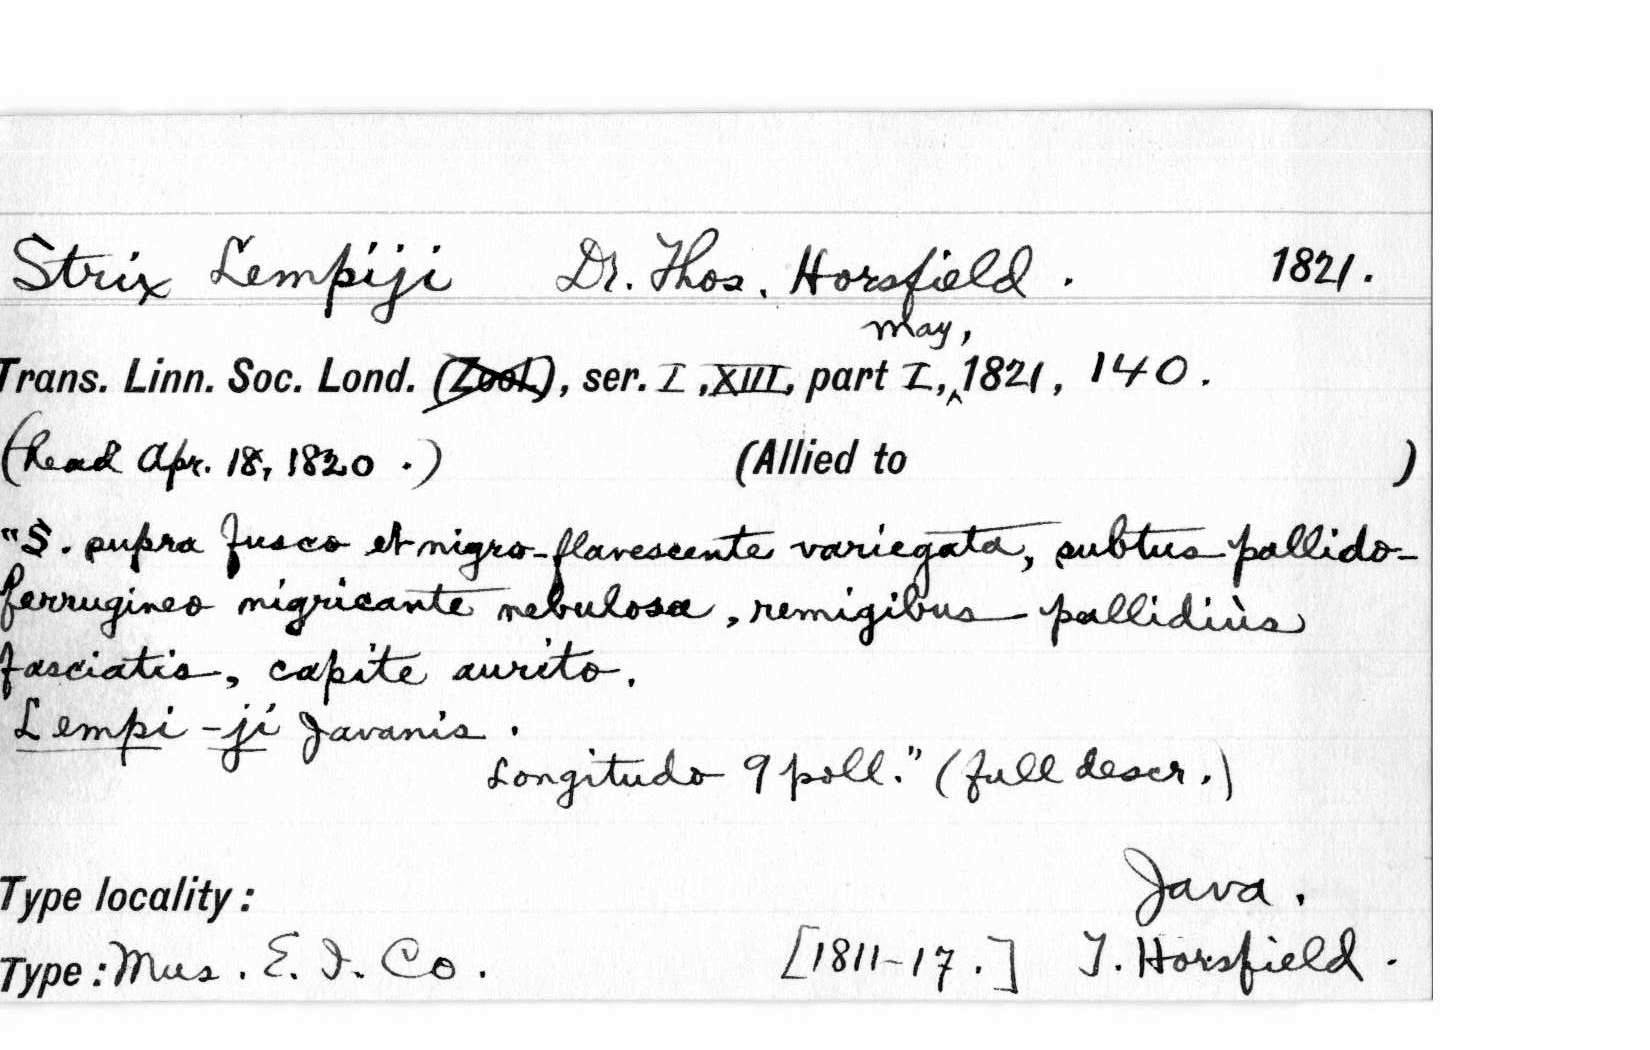 Strix Lempiji Dr. Thos. Horsfield. 1821.
May,
Trans. Linn. Soc. Lond. (Zool.), ser. I, XIII, part I, ^ 1821, 140.
(Read Apr. 18, 1820.) (Allied to )
"S. supra fusco et nigro-flavescente variegata, subtus pallido-
ferrugineo nigricante nebulosa, remigibus pallidiùs
fasciatis, capite aurito.
Lempi-ji Javanis.
Longitudo 9 poll." (full descr.)
Type locality: Java.
Type: Mus. E. I. Co. [1811-17.] T. Horsfield.